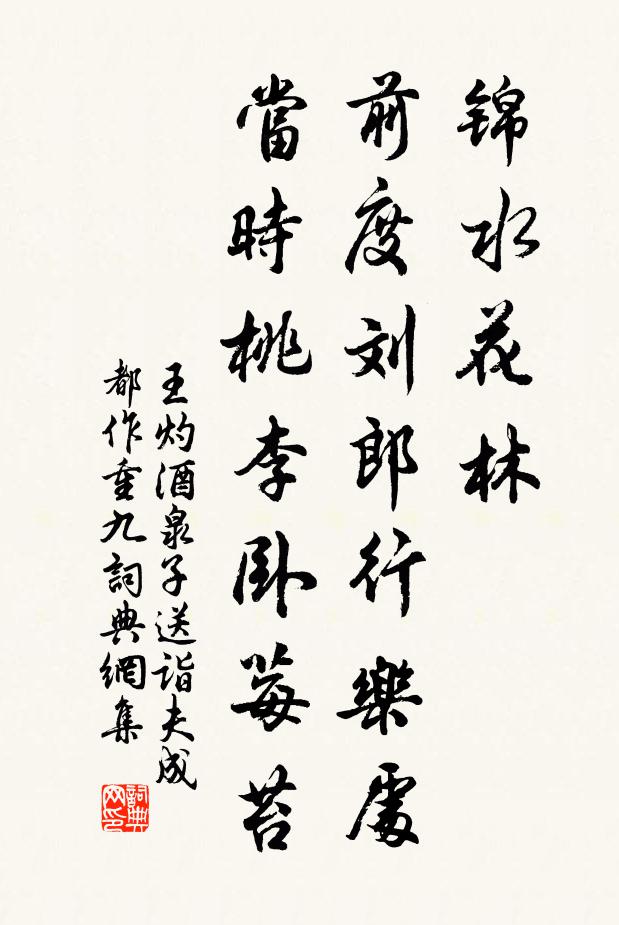 锦水花林
前度刘郎行樂處
當時桃李卧莓苔
王灼酒泉子送詣夫成
都作重九詞典網集
詞典
网印